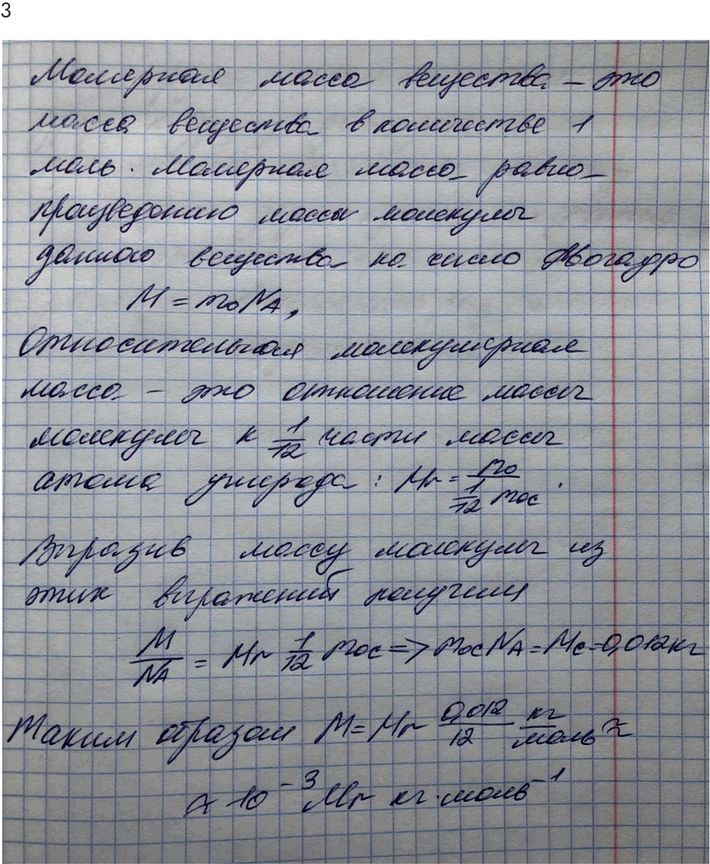 3
Молярная масса вещества – это
масса вещества в количестве 1
моль. Молярная масса равна
произведению массы молекулы
данного вещества на число Авогадро
M = m₀Nᴀ,
Относительная молекулярная
масса – это отношение массы
молекулы к 1/12 части массы
атома углерода: Mr = m₀ / (1/12 m₀c).
Выразив массу молекулы из
этих выражений получим
M/Nᴀ = Mr 1/12 m₀c => m₀cNᴀ = Mc = 0,012кг
Таким образом M = Mr 0,012/12 кг/моль ≈
≈ 10⁻³ Mr кг·моль⁻¹